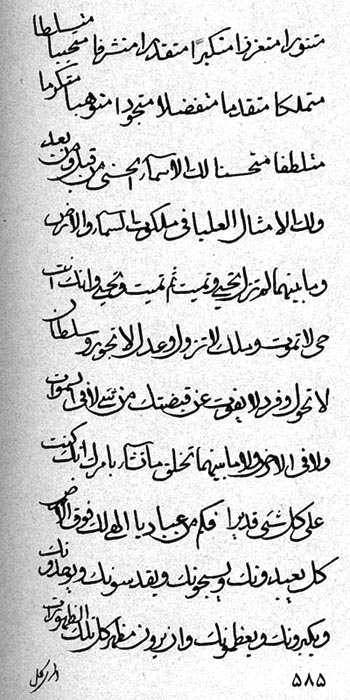 متنورا متعززا متكبرا متقدرا منشرفا متحببا متسلطا
متملكا متقدما متفضلا متجودا متوهبا متكرما
متلطفا متحسنا لك الاسماء الحسنى من قبل ومن بعد
ولك الامثال العليا فى ملكوت السماء والارض
وما بينهما لم تزل تحيى وتميت ثم تميت وتحيى وانك انت
حى لا تموت وملك لا تزول وعدل لا تجور وسلطان
لا تحول وفرد لا يفوت عن قبضتك من شئ لا فى السموات
ولا فى الارض ولا ما بينهما تخلق ما تشاء بامرك انك كنت
على كل شئ قديرا فكم من عباد يا الهى لك فوق الارض
كل يعبدونك ويسبحونك ويقدسونك ويوحدونك
ويكبرونك ويعظمونك وان يرون مظهر كل تلك الظهورات
۵۸۵